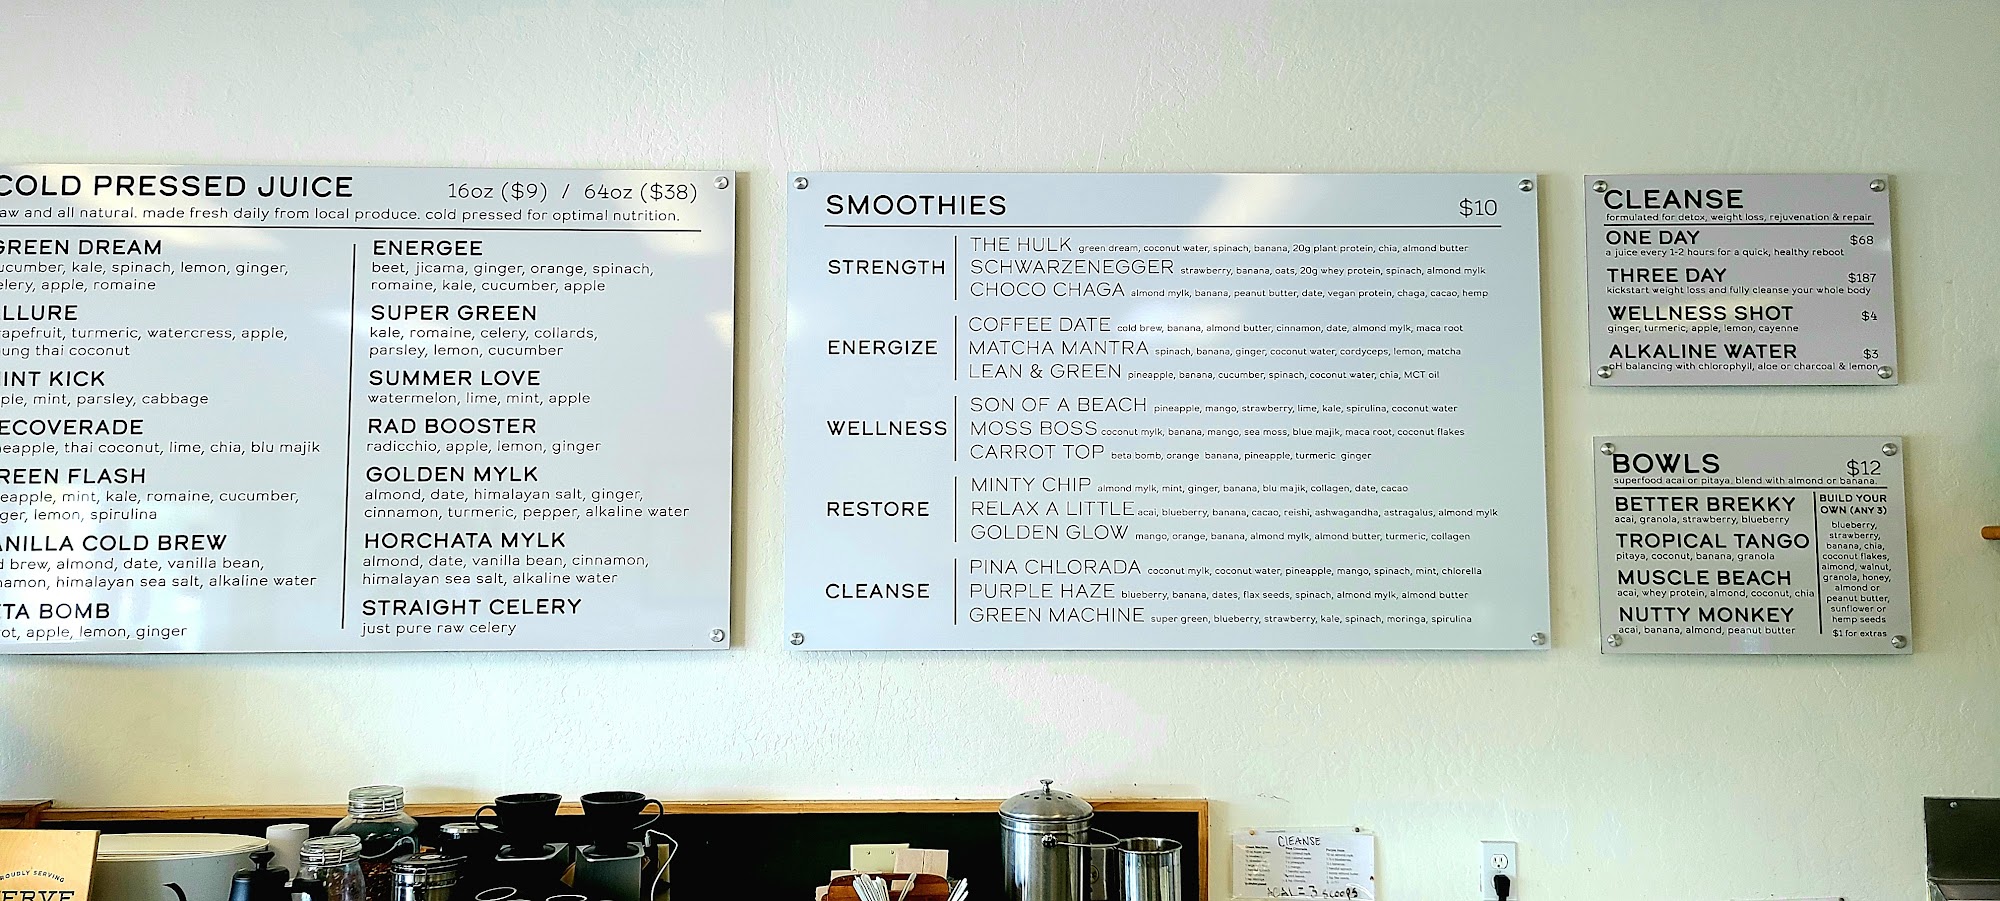 COLD PRESSED JUICE 16oz ($9) / 64oz ($38)
aw and all natural. made fresh daily from local produce. cold pressed for optimal nutrition.
GREEN DREAM
ucumber, kale, spinach, lemon, ginger,
elery, apple, romaine
LLURE
rapefruit, turmeric, watercress, apple,
ung thai coconut
INT KICK
ple, mint, parsley, cabbage
ECOVERADE
eapple, thai coconut, lime, chia, blu majik
REEN FLASH
eapple, mint, kale, romaine, cucumber,
ger, lemon, spirulina
ANILLA COLD BREW
d brew, almond, date, vanilla bean,
namon, himalayan sea salt, alkaline water
ETA BOMB
ot, apple, lemon, ginger
ENERGEE
beet, jicama, ginger, orange, spinach,
romaine, kale, cucumber, apple
SUPER GREEN
kale, romaine, celery, collards,
parsley, lemon, cucumber
SUMMER LOVE
watermelon, lime, mint, apple
RAD BOOSTER
radicchio, apple, lemon, ginger
GOLDEN MYLK
almond, date, himalayan salt, ginger,
cinnamon, turmeric, pepper, alkaline water
HORCHATA MYLK
almond, date, vanilla bean, cinnamon,
himalayan sea salt, alkaline water
STRAIGHT CELERY
just pure raw celery
SMOOTHIES $10
STRENGTH
THE HULK green dream, coconut water, spinach, banana, 20g plant protein, chia, almond butter
SCHWARZENEGGER strawberry, banana, oats, 20g whey protein, spinach, almond mylk
CHOCO CHAGA almond mylk, banana, peanut butter, date, vegan protein, chaga, cacao, hemp
ENERGIZE
COFFEE DATE cold brew, banana, almond butter, cinnamon, date, almond mylk, maca root
MATCHA MANTRA spinach, banana, ginger, coconut water, cordyceps, lemon, matcha
LEAN & GREEN pineapple, banana, cucumber, spinach, coconut water, chia, MCT oil
WELLNESS
SON OF A BEACH pineapple, mango, strawberry, lime, kale, spirulina, coconut water
MOSS BOSS coconut mylk, banana, mango, sea moss, blue majik, maca root, coconut flakes
CARROT TOP beta bomb, orange banana, pineapple, turmeric ginger
RESTORE
MINTY CHIP almond mylk, mint, ginger, banana, blu majik, collagen, date, cacao
RELAX A LITTLE acai, blueberry, banana, cacao, reishi, ashwagandha, astragalus, almond mylk
GOLDEN GLOW mango, orange, banana, almond mylk, almond butter, turmeric, collagen
CLEANSE
PINA CHLORADA coconut mylk, coconut water, pineapple, mango, spinach, mint, chlorella
PURPLE HAZE blueberry, banana, dates, flax seeds, spinach, almond mylk, almond butter
GREEN MACHINE super green, blueberry, strawberry, kale, spinach, moringa, spirulina
CLEANSE
formulated for detox, weight loss, rejuvenation & repair
ONE DAY $68
a juice every 1-2 hours for a quick, healthy reboot
THREE DAY $187
kickstart weight loss and fully cleanse your whole body
WELLNESS SHOT $4
ginger, turmeric, apple, lemon, cayenne
ALKALINE WATER $3
pH balancing with chlorophyll, aloe or charcoal & lemon
BOWLS $12
superfood acai or pitaya. blend with almond or banana.
BETTER BREKKY
acai, granola, strawberry, blueberry
TROPICAL TANGO
pitaya, coconut, banana, granola
MUSCLE BEACH
acai, whey protein, almond, coconut, chia
NUTTY MONKEY
acai, banana, almond, peanut butter
BUILD YOUR
OWN (ANY 3)
blueberry,
strawberry,
banana, chia,
coconut flakes,
almond, walnut,
granola, honey,
almond or
peanut butter,
sunflower or
hemp seeds
$1 for extras
ROUDLY SERVING
ERVE
CLEANSE
= 3 scoops